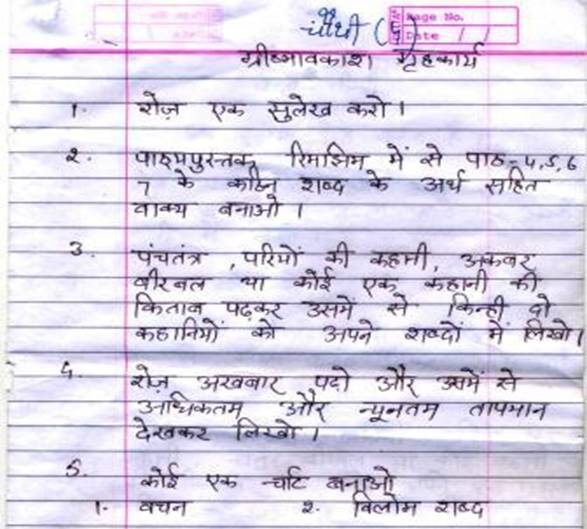 चौथी
Page No.
Date / /
ग्रीष्मावकाश गृहकार्य
1. रोज़ एक सुलेख करो।
2. पाठ्यपुस्तक रिमझिम में से पाठ-4,5,6
7 के कठिन शब्द के अर्थ सहित
वाक्य बनाओ।
3. पंचतंत्र, परियों की कहानी, अकबर
बीरबल या कोई एक कहानी की
किताब पढ़कर उसमें से किन्ही दो
कहानियों को अपने शब्दों में लिखो।
4. रोज़ अखबार पढो और उसमें से
अधिकतम और न्यूनतम तापमान
देखकर लिखो।
5. कोई एक चार्ट बनाओ
1. वचन 2. विलोम शब्द